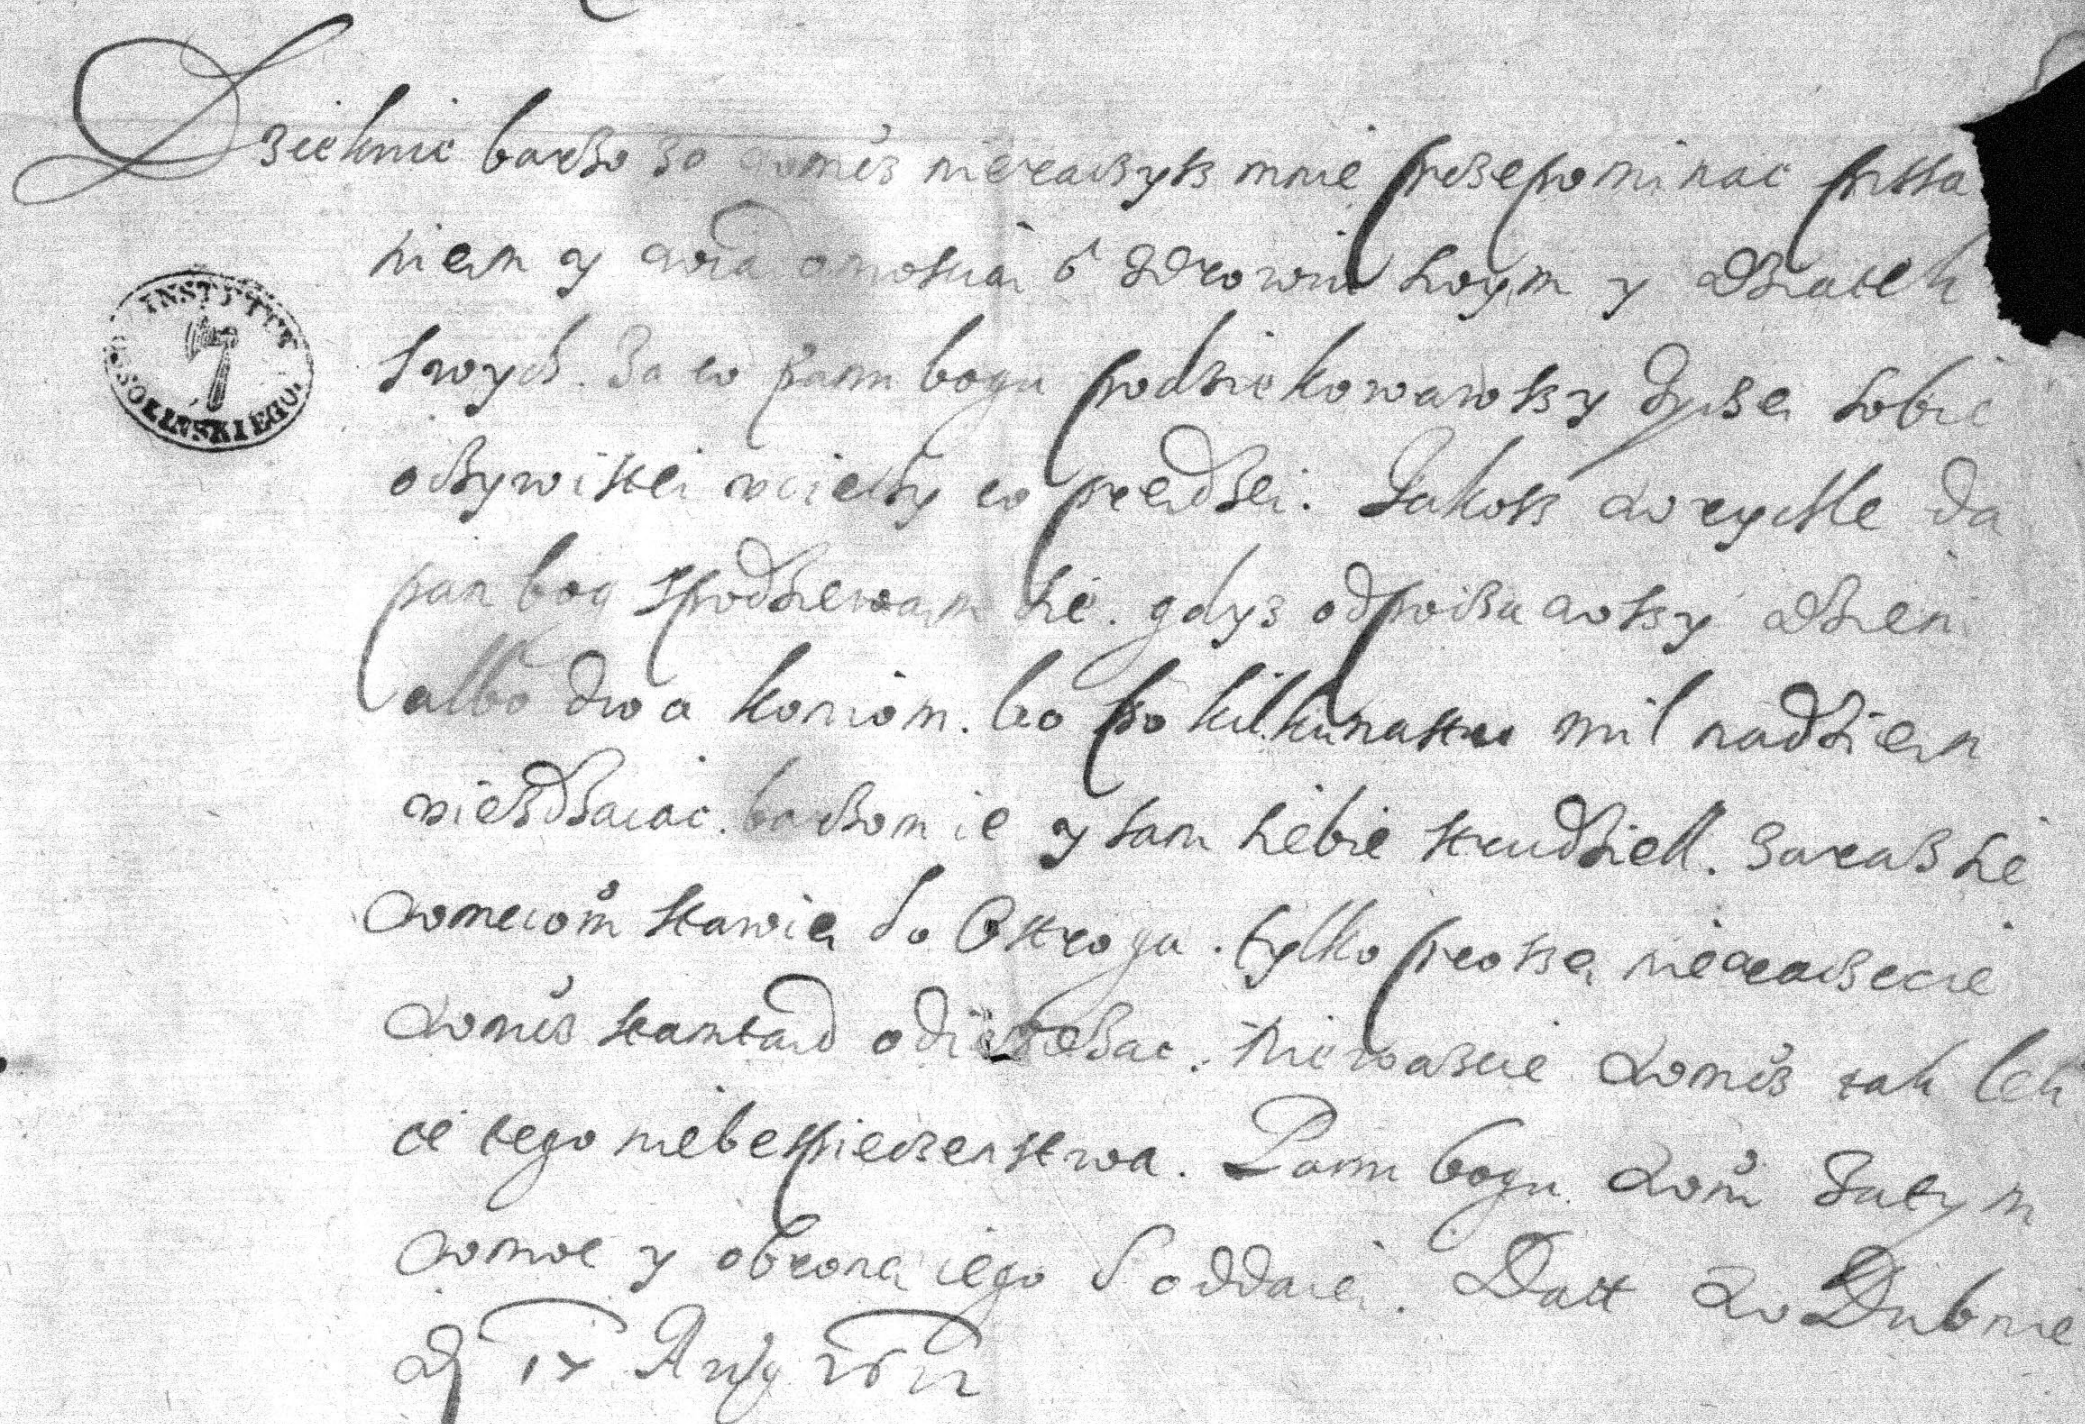 Dziekuie barzo za wmċz nieraczysz mnie przepominac pissa
niem y wiadomoscią o zdrowiu swym y dziatek
swych. Za co panu bogu podziekowawszy życzę sobie
oczywistei uciechy co prędzei. Jakosz wrychle da
pan bog spodziewam sie. gdysz odpocząwszy dzien
albo dwa koniom. bo po kilkunastu mil nadzien
uieżdżaiac. barzom ie y sam siebie strudziell. zaraz sie
wmciom stawię do Ostroga. tylko proszę nieraczcie
wmċz stamtąd odieżdżac. Nieważcie wmċz tak lek
ce tego niebespieczenstwa. Panu bogu wm̊ zatym
wmoc y obronę iego S oddaię. Datt w Dubnie
INSTYTUT
OSSOLIŃSKIEGO